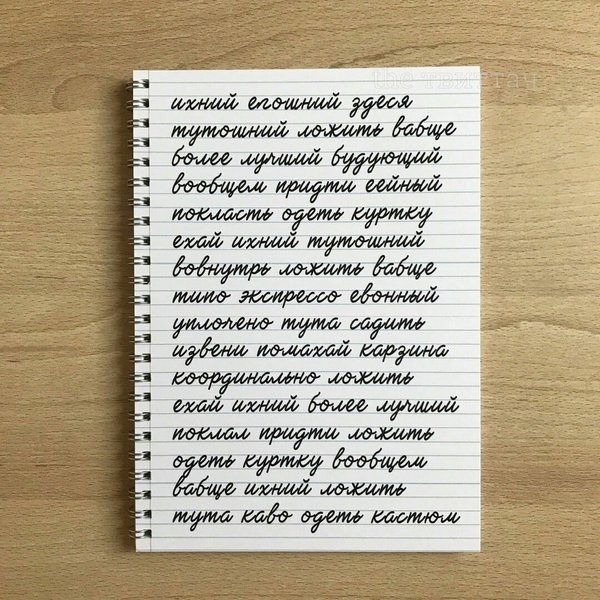 the твиттач
ихний егошний здеся
тутошний ложить вабще
более лучший будующий
вообщем придти еейный
покласть одеть куртку
ехай ихний тутошний
вовнутрь ложить вабще
типо экспрессо евонный
уплочено тута садить
извени помахай карзина
координально ложить
ехай ихний более лучший
поклал придти ложить
одеть куртку вообщем
вабще ихний ложить
тута каво одеть кастюм